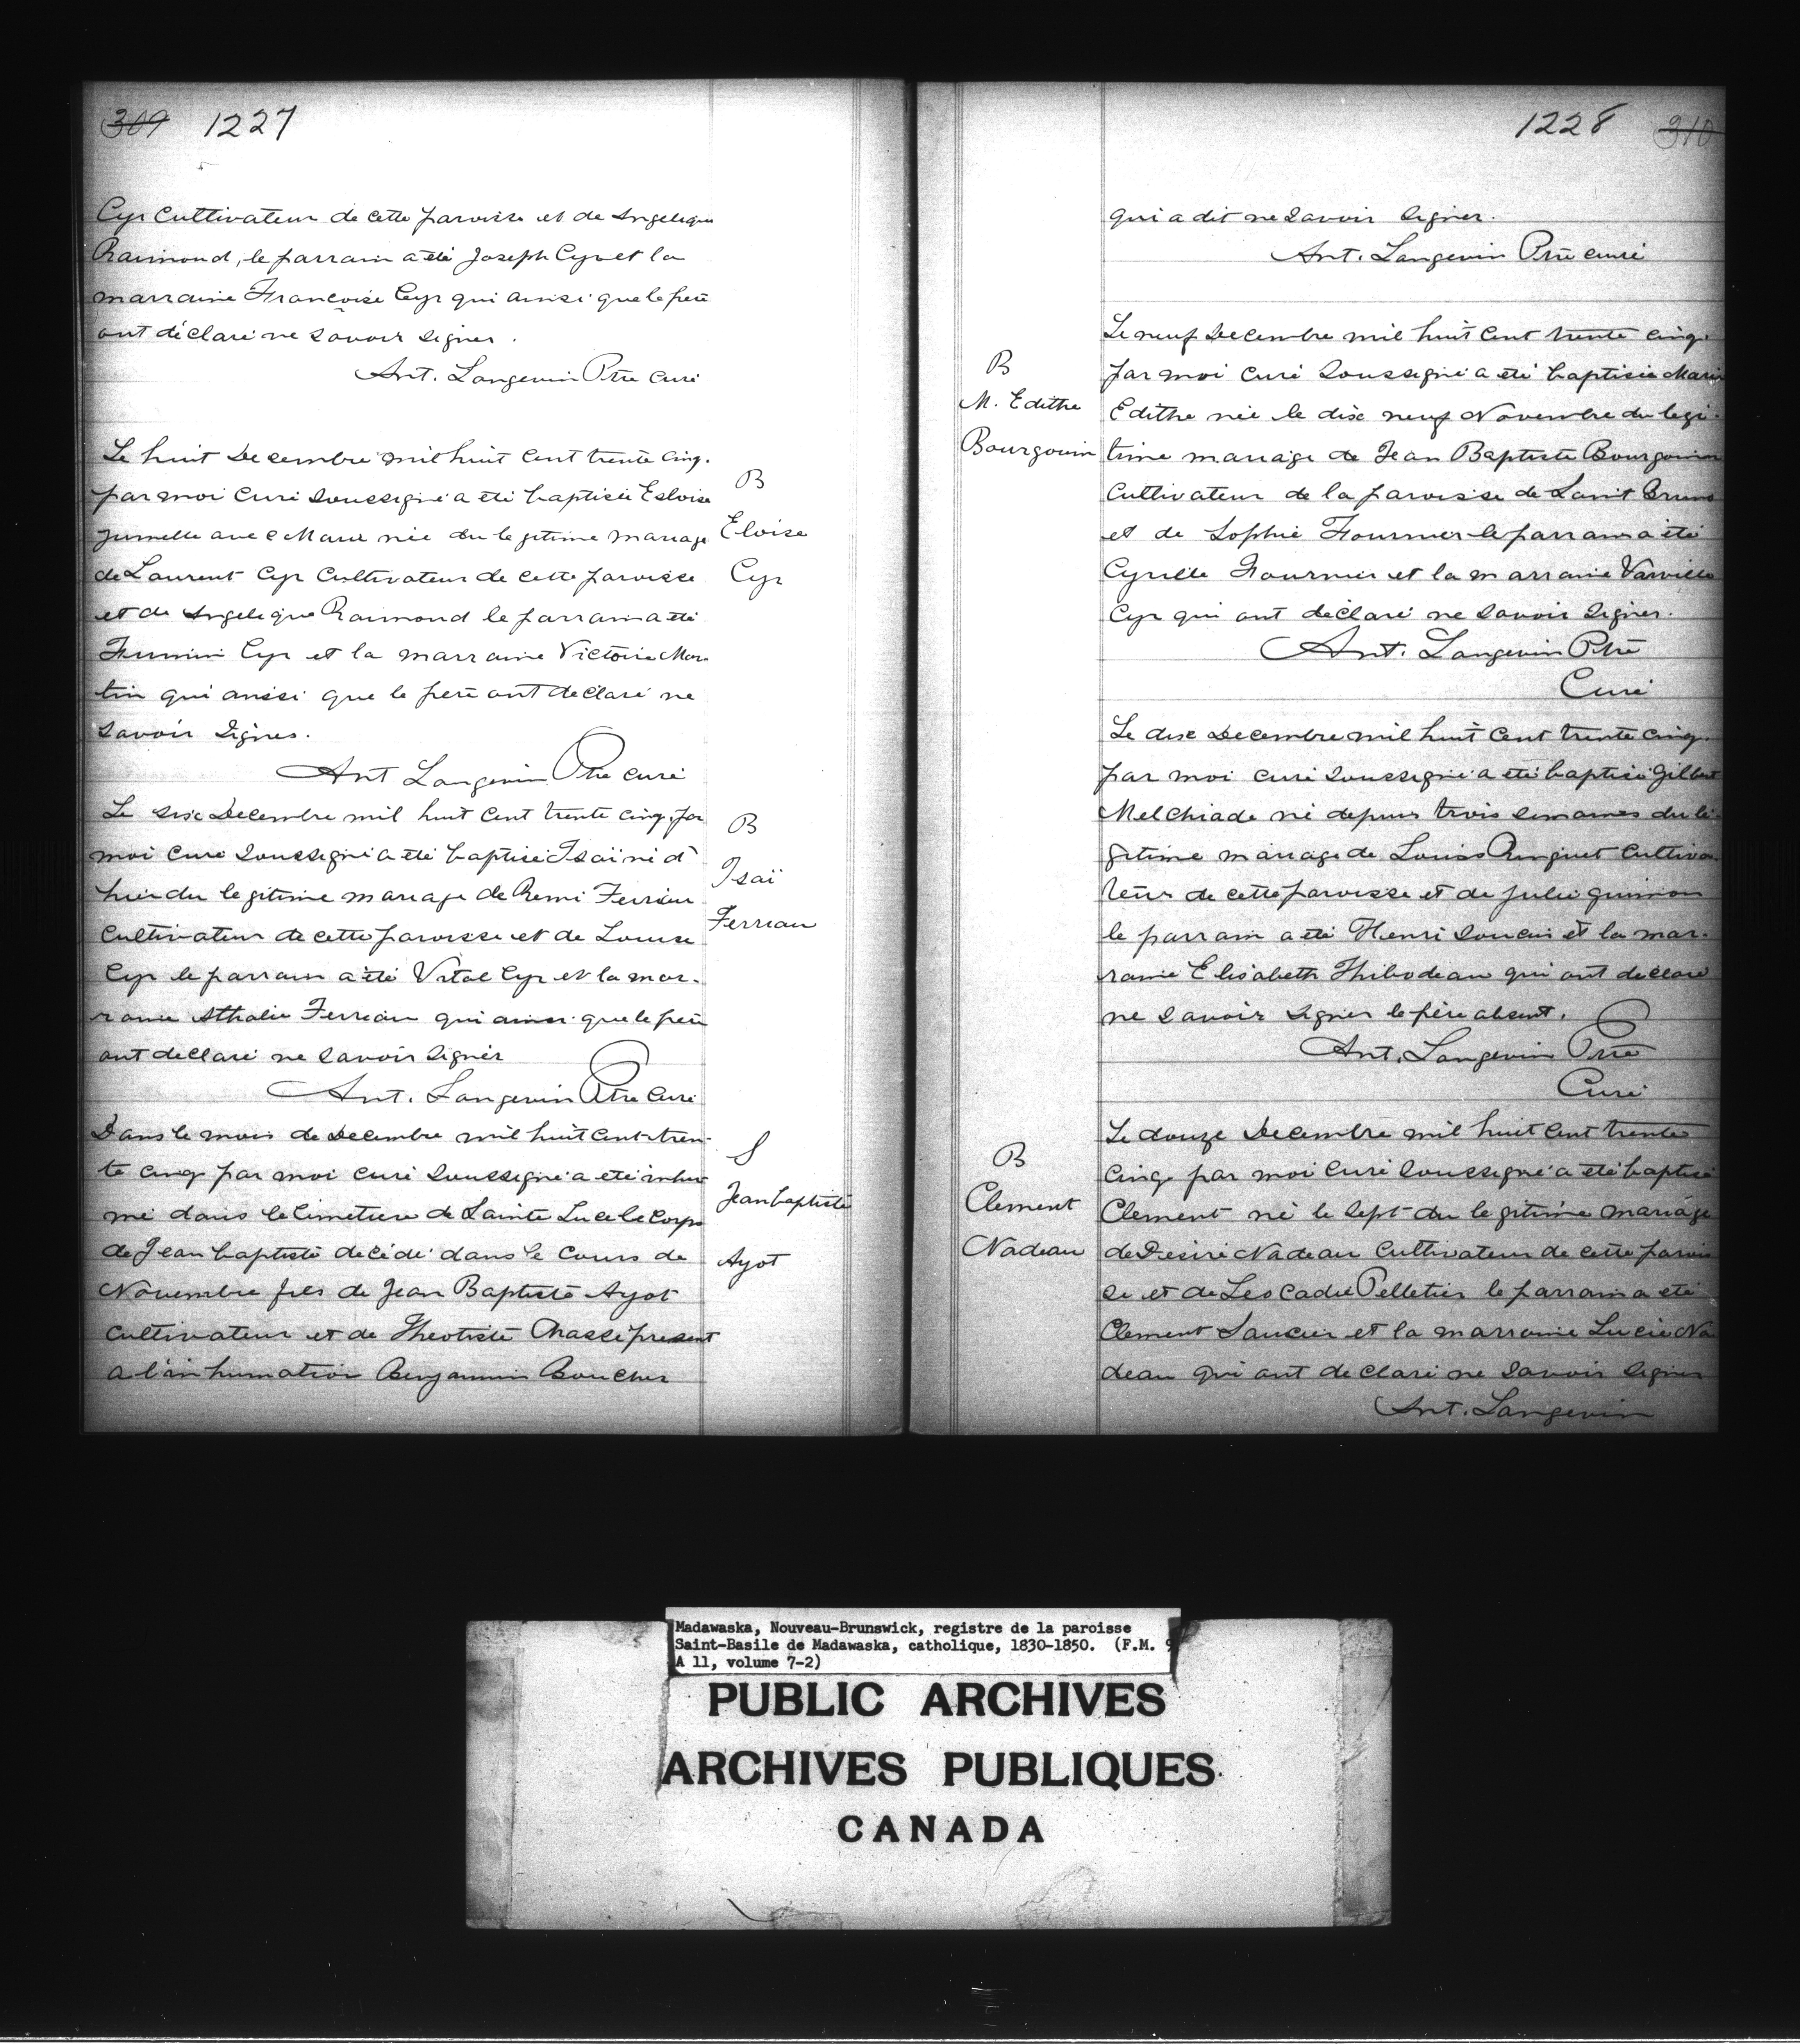 309 1227
Cyr Cultivateur de cette paroisse et de Angelique
Raimond, le parrain a été Joseph Cyr et la
marraine Françoise Cyr qui ainsi que le père
ont déclaré ne savoir signer.
Ant. Langevin Ptre curé
Le huit Decembre mil huit cent trente cinq.
par moi Curé soussigné a été baptisée Esloise
jumelle avec Marie née du legitime mariage
de Laurent Cyr Cultivateur de cette paroisse
et de Angelique Raimond le parrain a été
Firmin Cyr et la marraine Victoire Mar-
tin qui aussi que le père ont declaré ne
savoir signer.
Ant Langevin Ptre curé
B
Eloise
Cyr
Le six Decembre mil huit cent trente cinq par
moi Curé soussigné a été baptisé Isaï né d'
hier du legitime mariage de Remi Ferriau
Cultivateur de cette paroisse et de Louise
Cyr le parrain a été Vital Cyr et la mar-
raine Athalie Ferriau qui ainsi que le père
ont declaré ne savoir signer
Ant. Langevin Ptre Curé
B
Isaï
Ferriau
Dans le mois de Decembre mil huit cent tren-
te cinq par moi curé soussigné a été inhu
mé dans le Cimetiere de Sainte Luce le Corps
de Jean baptiste decédé dans le cours de
Novembre fils de Jean Baptiste Ayot
Cultivateur et de Theotiste Chassé present
a l'inhumation Benjamin Boucher
S
Jean baptiste
Ayot
1228 310
qui a dit ne savoir signer.
Ant. Langevin Ptre curé
Le neuf Decembre mil huit cent trente cinq.
par moi curé soussigné a été baptisée Marie
Edithe née le dix neuf Novembre du legi-
time mariage de Jean Baptiste Bourgouin
Cultivateur de la paroisse de Saint Bruno
et de Sophie Fournier le parrain a été
Cyrille Fournier et la marraine
Cyr qui ont déclaré ne savoir signer.
Ant. Langevin Ptre
Curé
B
M. Edithe
Bourgouin
Le dix Decembre mil huit cent trente cinq.
par moi curé soussigné a été baptisé Gilbert
Melchiade né depuis trois semaines du lé-
gitime mariage de Louis Ringuet Cultiva-
teur de cette paroisse et de Julie Guimon
le parrain a été Henri Soucis et la mar-
raine Elisabeth Thibodeau qui ont declaré
ne savoir signer le père absent.
Ant. Langevin Ptre
Curé
Le douze Decembre mil huit cent trente
Cinq. par moi Curé soussigné a été baptisé
Clement né le sept du legitime mariage
de Desiré Nadeau Cultivateur de cette parois
se et de Leocadie Pelletier le parrain a été
Clement Saucier et la marraine Lucie Na
deau qui ont declaré ne savoir signer
Ant. Langevin
B
Clement
Nadeau
Madawaska, Nouveau-Brunswick, registre de la paroisse
Saint-Basile de Madawaska, catholique, 1830-1850. (F.M. 9
A 11, volume 7-2)
PUBLIC ARCHIVES
ARCHIVES PUBLIQUES
CANADA